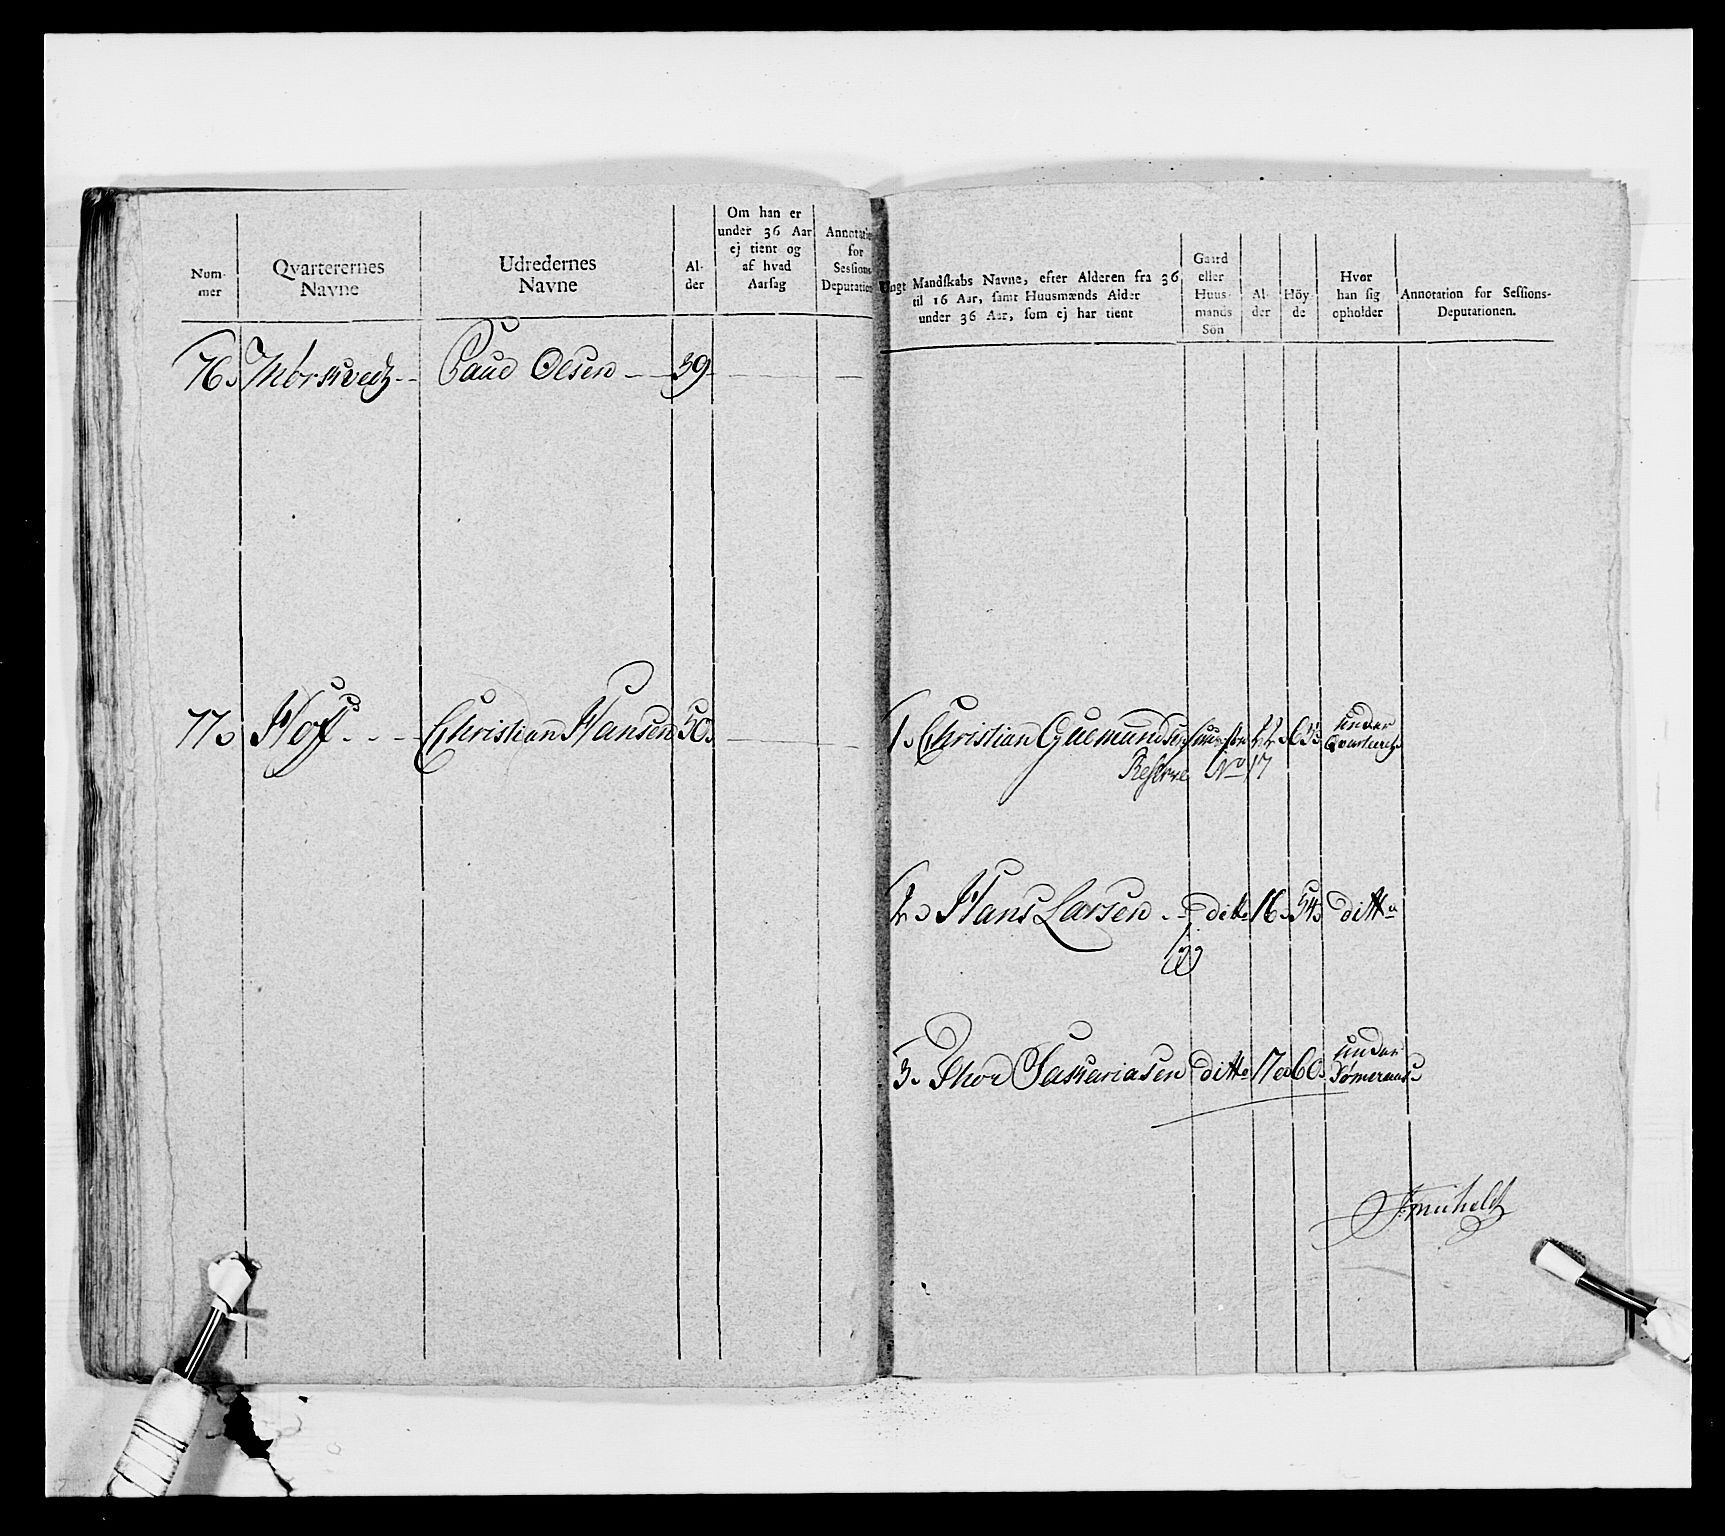 Num-
mer
Qvarterernes
Navne
Udredernes
Navne
Al-
der
Om han er
under 36 Aar
ej tient og
af hvad
Aarsag
Annotation
for
Sessions-
Deputation
Ungt Mandskabs Navne, efter Alderen fra 36
til 16 Aar, samt Huusmænds Alder
under 36 Aar, som ej har tient
Gaard
eller
Huus-
mands
Sön
Al-
der
Höy-
de
Hvor
han sig
opholder
Annotation for Sessions-
Deputationen.
76. Mørkvedt Paul Olsen 39
77. Hof Christian Hansen 50.
1. Christian Gulmundsen 22. 63. under
Qvarteret
Reserve No 17
2. Hans Larsen ditto 16. 54. ditto
3. Thor Sakariasen ditto 17 60. under